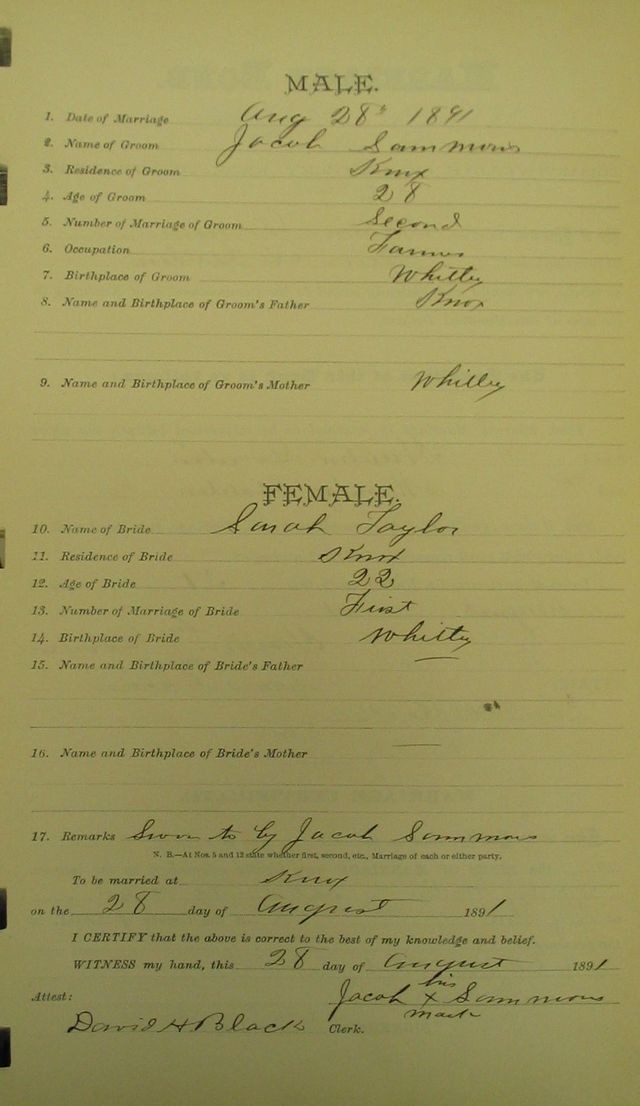 MALE.
1. Date of Marriage Aug 28th 1891
2. Name of Groom Jacob Sammons
3. Residence of Groom Knox
4. Age of Groom 28
5. Number of Marriage of Groom Second
6. Occupation Farmer
7. Birthplace of Groom Whitley
8. Name and Birthplace of Groom's Father Knox
9. Name and Birthplace of Groom's Mother Whitley
FEMALE.
10. Name of Bride Sarah Taylor
11. Residence of Bride Knox
12. Age of Bride 22
13. Number of Marriage of Bride First
14. Birthplace of Bride Whitley
15. Name and Birthplace of Bride's Father —
16. Name and Birthplace of Bride's Mother —
17. Remarks Sworn to by Jacob Sammons
N. B.—At Nos. 5 and 13 state whether first, second, etc., Marriage of each or either party.
To be married at Knox
on the 28 day of August 1891
I CERTIFY that the above is correct to the best of my knowledge and belief.
WITNESS my hand, this 28 day of August 1891
his
Attest: Jacob X Sammons
mark
David H Black Clerk.